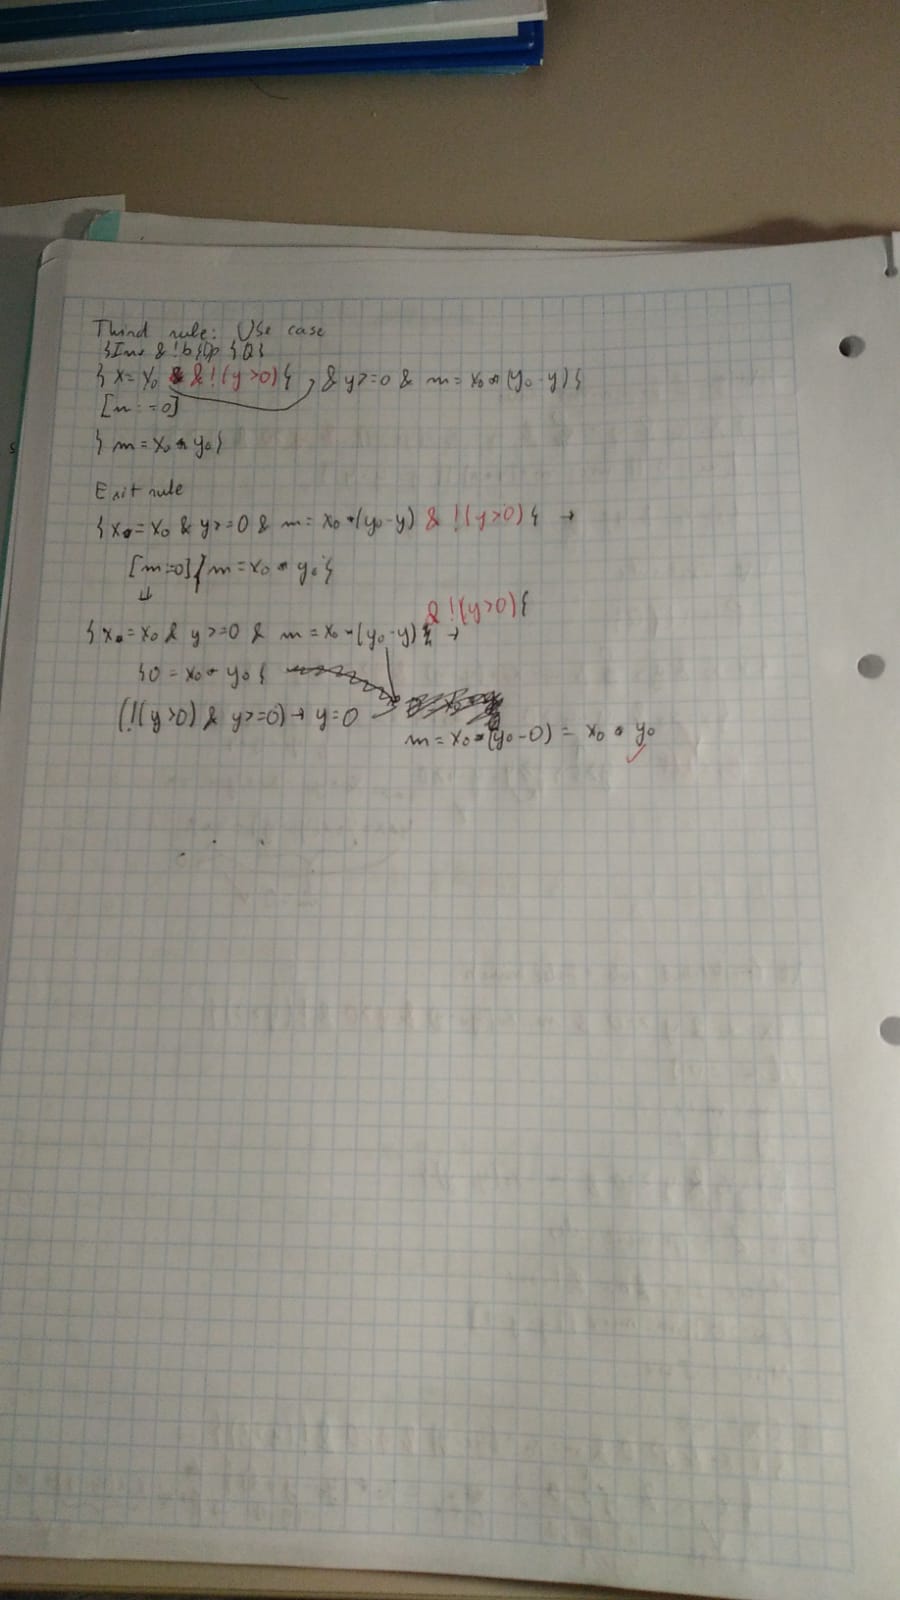 Third rule: Use case
{Inv & !b}p{Q}
{x = x₀ & !(y>0)} & y>=0 & m = x₀ * (y₀-y)}
[m:=0]
{m = x₀ * y₀}
Exit rule
{x = x₀ & y>=0 & m = x₀ * (y₀-y) & !(y>0)} →
[m:=0]{m = x₀ * y₀}
↓
& !(y>0)}
{x = x₀ & y>=0 & m = x₀ * (y₀-y) →
{0 = x₀ * y₀}
(!(y>0) & y>=0) → y=0
m = x₀ * (y₀-0) = x₀ * y₀ ✓